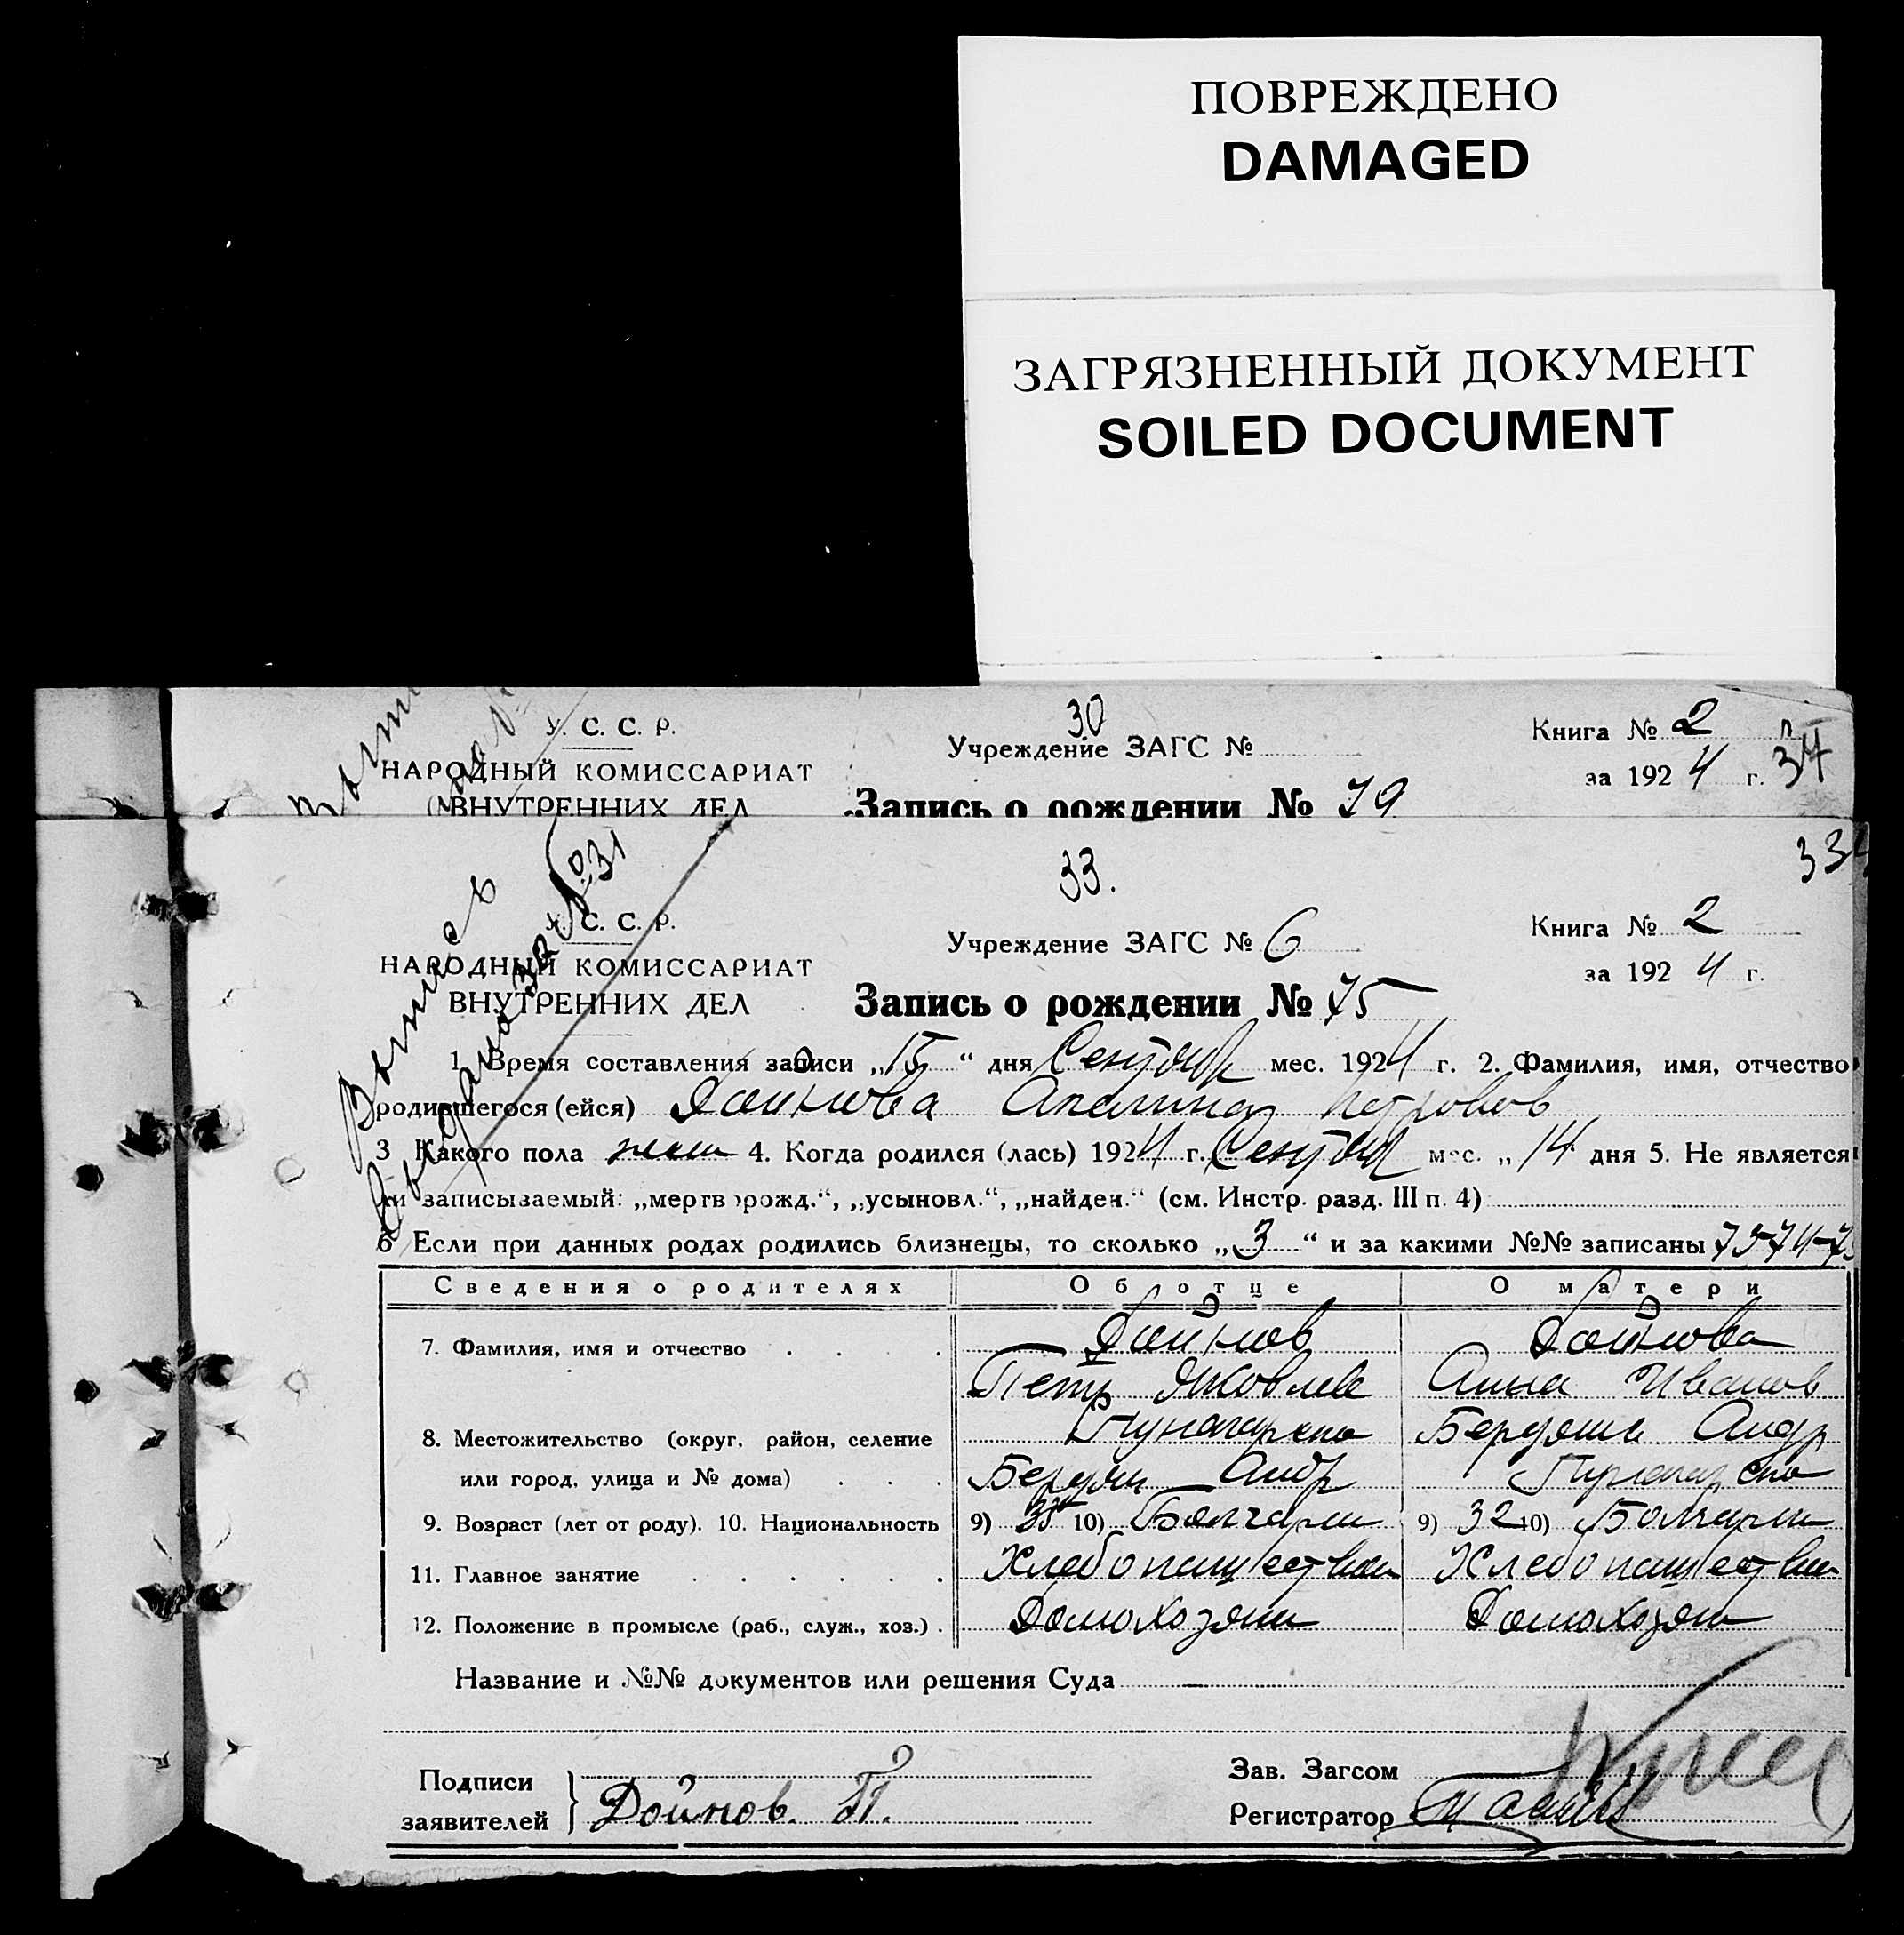 ПОВРЕЖДЕНО
DAMAGED
ЗАГРЯЗНЕННЫЙ ДОКУМЕНТ
SOILED DOCUMENT
У. С. С. Р.
НАРОДНЫЙ КОМИССАРИАТ
ВНУТРЕННИХ ДЕЛ
30
Учреждение ЗАГС №
Запись о рождении № 79
Книга № 2
за 1924 г.
34
Выпись
выдана за № 31
33.
33
У. С. С. Р.
НАРОДНЫЙ КОМИССАРИАТ
ВНУТРЕННИХ ДЕЛ
Учреждение ЗАГС № 6
Запись о рождении № 75
Книга № 2
за 1924 г.
1. Время составления записи „15“ дня Сентября мес. 1924 г. 2. Фамилия, имя, отчество
родившегося (ейся) Дойнова Петров
3 Какого пола жен 4. Когда родился (лась) 1924 г. Сентяб мес. „14 дня 5. Не является
ли записываемый: „мертворожд.“, „усыновл.“, „найден.“ (см. Инстр. разд. III п. 4)
6 Если при данных родах родились близнецы, то сколько „3“ и за какими №№ записаны
Сведения о родителях Об отце О матери
7. Фамилия, имя и отчество Дойнов Дойнова
Петр Яковлев Анна Иванов
8. Местожительство (округ, район, селение Бердянск Андр
или город, улица и № дома) Бердян Андр
9. Возраст (лет от роду). 10. Национальность 9) 35 10) Болгарин 9) 32 10) Болгарин
11. Главное занятие Хлебопашество Хлебопашество
12. Положение в промысле (раб., служ., хоз.) Домохозяин Домохозян
Название и №№ документов или решения Суда —
Подписи
заявителей Дойнов. П.
Зав. Загсом
Регистратор